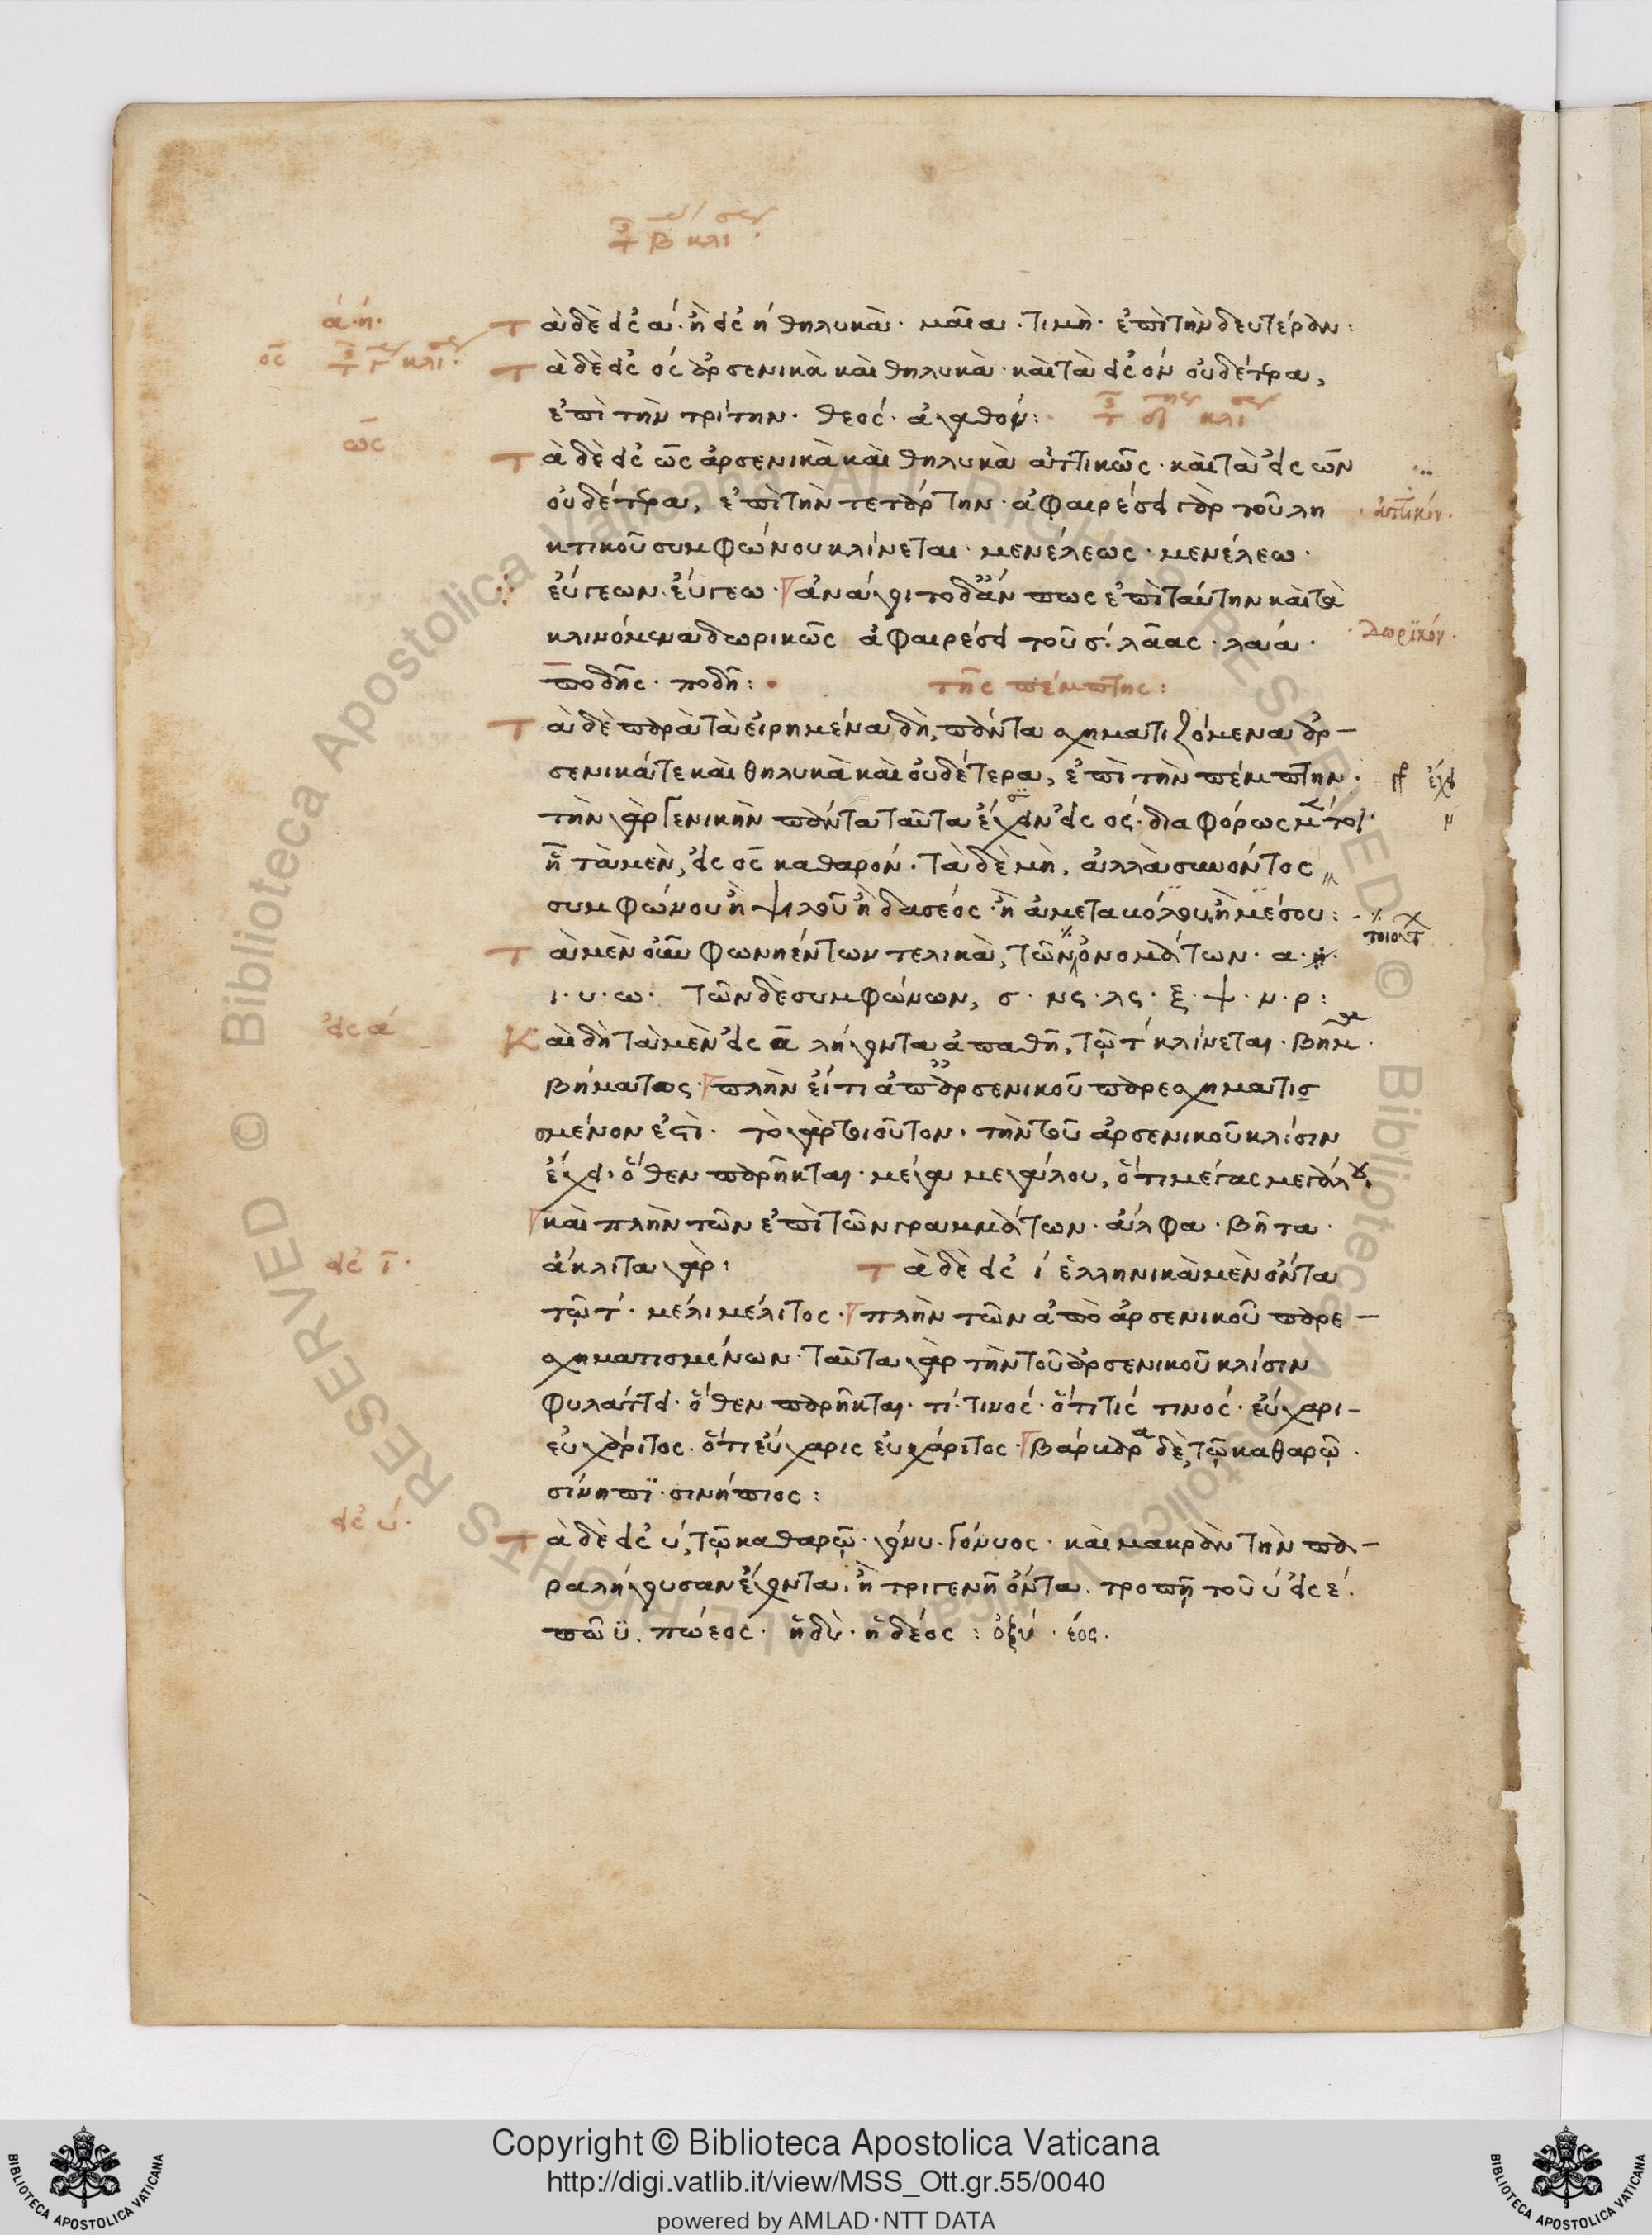 τῆς β κλι
ά · ή ·
Τὰ δὲ εἰς α· ἢ εἰς η θηλυκὰ · μαῖα · τιμὴ · ἐπὶ τὴν δευτέραν :
ος τῆς γ κλι ·
Τὰ δὲ εἰς ος ἀρσενικὰ καὶ θηλυκὰ · καὶ τὰ εἰς ον οὐδέτερα,
ἐπὶ τὴν τρίτην · θεός · ἀγαθόν : τῆς δ κλι
ως
Τὰ δὲ εἰς ως ἀρσενικὰ καὶ θηλυκὰ ἀττικῶς · καὶ τὰ εἰς ων
οὐδέτερα, ἐπὶ τὴν τετάρτην · ἀφαιρέσει γὰρ τοῦ λη
ἀττικόν ·
κτικοῦ συμφώνου κλίνεται · μενέλεως · μενέλεω ·
εὔγεων · εὔγεω · ἀνάγοιτο δ' ἄν πως ἐπὶ ταύτην καὶ τὰ
κλινόμενα δωρικῶς ἀφαιρέσει τοῦ σ · λᾶας · λαά ·
δωρικόν ·
ποδῆς · ποδῆ : τῆς πέμπτης :
Τὰ δὲ παρὰ τὰ εἰρημένα δὴ, πάντα σχηματιζόμενα ἀρ-
σενικά τε καὶ θηλυκὰ καὶ οὐδέτερα, ἐπὶ τὴν πέμπτην ·
τὴν γὰρ γενικὴν πάντα ταῦτα ἔχει εἰς ος · διαφόρως μέντοι ·
ἢ τὰ μὲν, εἰς ος καθαρόν · τὰ δὲ μὴ, ἀλλὰ συνόντος
συμφώνου ἢ ψιλοῦ ἢ δασέος · ἢ ἀμετακόλου, ἢ μέσου :
Τὰ μὲν οὖν φωνηέντων τελικὰ, τῶν ὀνομάτων · α · η ·
τοιούτ
ι · υ · ω · τῶν δὲ συμφώνων, σ · νς · λς · ξ · ψ · ν · ρ :
εἰς α
Καὶ δὴ τὰ μὲν εἰς α λήγοντα ἀπαθῆ, τῷ τ κλίνεται · βῆμα ·
βήματος · πλὴν εἴ τι ἀπ' ἀρσενικοῦ παρεσχηματισ
σμένον ἐστί · τὸ γὰρ τοιοῦτον · τὴν τοῦ ἀρσενικοῦ κλίσιν
ἔχει · ὅθεν παρῆκται · μέγα μεγάλου, ὅτι μέγας μεγάλου ·
καὶ πλὴν τῶν ἐπὶ τῶν γραμμάτων · ἄλφα · βῆτα ·
εἰς ι ·
ἄκλιτα γάρ : Τὰ δὲ εἰς ι ἑλληνικὰ μὲν ὄντα
τῷ τ · μέλι μέλιτος · πλὴν τῶν ἀπὸ ἀρσενικοῦ παρε-
σχηματισμένων · ταῦτα γὰρ τὴν τοῦ ἀρσενικοῦ κλίσιν
φυλάττει · ὅθεν παρῆκται · τί · τινός · ὅτι τίς τινός · εὔχαρι -
εὐχάριτος · ὅτι εὔχαρις εὐχάριτος · βάρβαρα δὲ, τῷ καθαρῷ ·
σίνηπϊ · σινήπιος :
εἰς ύ ·
Τὰ δὲ εἰς υ, τῷ καθαρῷ · γόνυ · γόνυος · καὶ μακρὰν τὴν πα-
ραλήγουσαν ἔχοντα, ἢ τριγενῆ ὄντα · τροπῇ τοῦ υ εἰς ε ·
πῶϋ · πώεος · ἡδὺ · ἡδέος : ὀξύ · έος ·
Copyright © Biblioteca Apostolica Vaticana
http://digi.vatlib.it/view/MSS_Ott.gr.55/0040
powered by AMLAD·NTT DATA